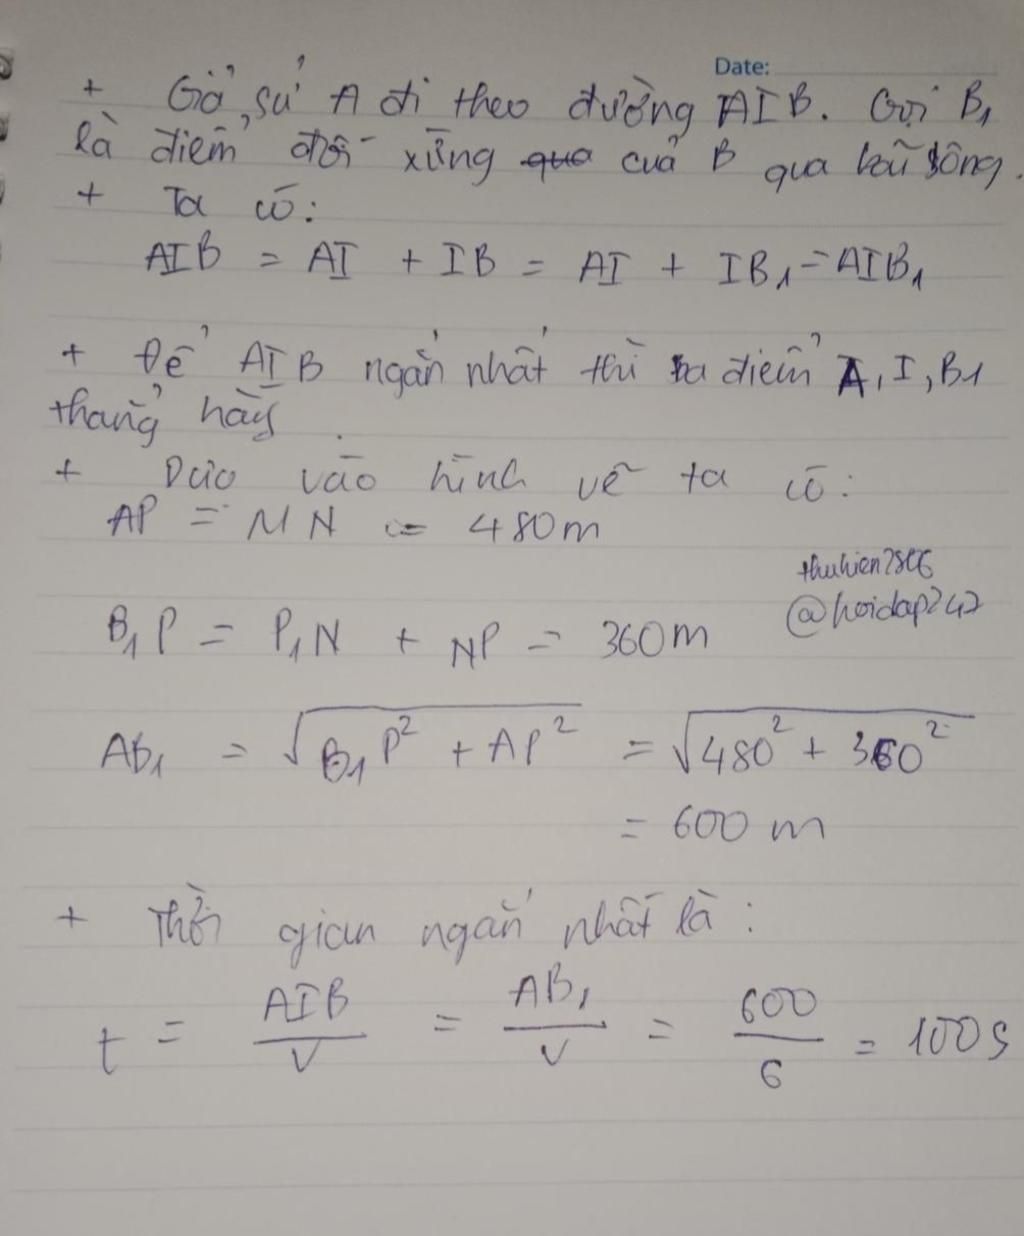 Date:
+ Giả sử A đi theo đường AIB. Gọi B₁
là điểm đối xứng qua của B qua bờ sông.
+ Ta có:
AIB = AI + IB = AI + IB₁ = AIB₁
+ Để AIB ngắn nhất thì ba điểm A, I, B₁
thẳng hàng.
+ Dựa vào hình vẽ ta có:
AP = MN = 480m
thuhien2806
@hoidap247
B₁P = P₁N + NP = 360m
AB₁ = √(B₁P² + AP²) = √(480² + 360²)
= 600 m
+ Thời gian ngắn nhất là:
t = AIB/v = AB₁/v = 600/6 = 100s